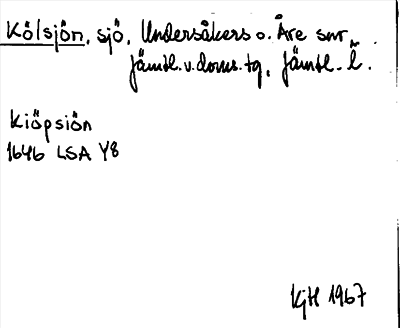 Kölsjön, sjö, Undersåkers o. Åre snr
Jämtl. v. doms. tg, Jämtl. l.
Kiöpsiön
1646 LSA Y8
KjH 1967